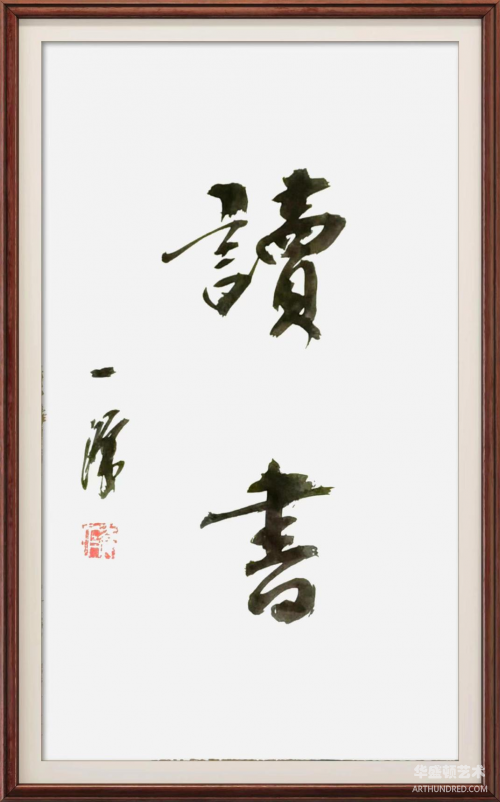 讀書
一
华盛顿艺术
ARTHUNDRED.COM